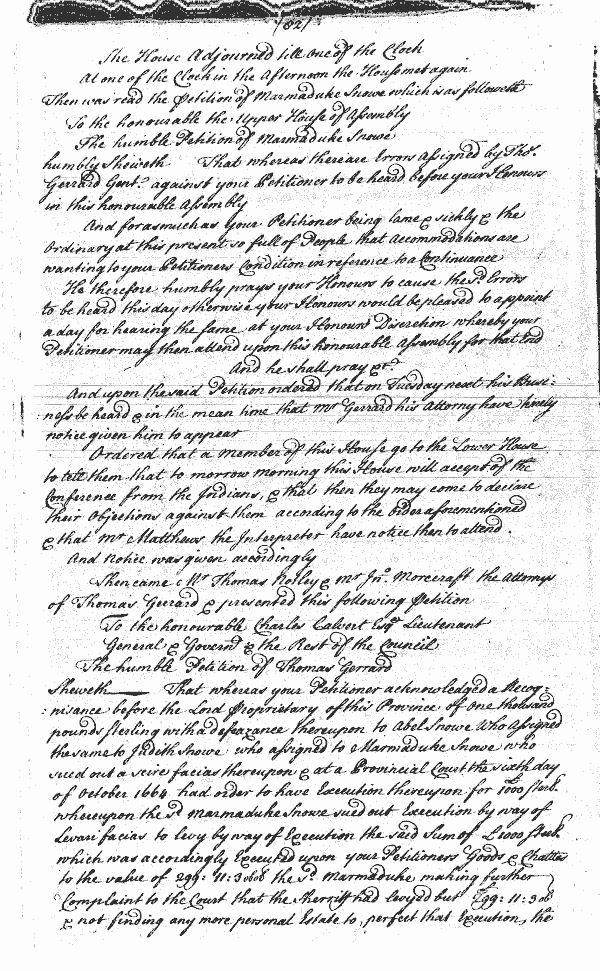 (82)
The House Adjourned till One of the Clock
At one of the Clock in the Afternoon the House met again
Then was read the Petition of Marmaduke Snowe which is as followeth
To the honourable the Upper House of Assembly
The humble Petition of Marmaduke Snowe
humbly Sheweth That whereas there are Errors Assigned by Tho.s
Gerrard Gent.n against your Petitioner to be heard before your Honours
in this honourable Assembly
And forasmuch as your Petitioner being lame & sickly & the
Ordinary at this present so full of People that accommodations are
wanting to your Petitioners Condition in reference to a Continuance
He therefore humbly prays your Honours to cause the s.d Errors
to be heard this day otherwise your Honours would be pleased to appoint
a day for hearing the same at your Honours Discretion whereby your
Petitioner may then attend upon this honourable Assembly for that End
And he shall pray &c.
And upon the said Petition ordered that on Tuesday next his Busi-
ness be heard & in the mean time that mr Gerrard his Attorny have timely
notice given him to appear
Ordered that a Member of this House go to the Lower House
to tell them that to morrow morning this House will accept of the
Conference from the Indians, & that then they may come to declare
their Objections against them according to the Order aforementioned
& that mr Matthews the Interpreter have notice then to attend.
And Notice was given accordingly
Then came Mr Thomas Notley & mr Jn.o Morecraft the Attornys
of Thomas Gerrard & presented this following Petition
To the honourable Charles Calvert Esqr Lieutenant
General & Govern.r & the Rest of the Council
The humble Petition of Thomas Gerrard
Sheweth That whereas your Petitioner acknowledged a Recog=
=nisance before the Lord Proprietary of this Province of One thousand
pounds sterling with a defeazance thereupon to Abel Snowe Who Assigned
the same to Judith Snowe who assigned to Marmaduke Snowe who
sued out a scire facias thereupon & at a Provincial Court the sixth day
of October 1664 had order to have Execution thereupon for 1000 sterl.
whereupon the s.d Marmaduke Snowe sued out Execution by way of
Levari facias to levy by way of Execution the said Sum of £1000 sterl.
which was accordingly Executed upon your Petitioners Goods & Chattes
to the value of 299: 11: 3 the s.d Marmaduke making further
Complaint to the Court that the Sherriff had levyed but 299: 11: 3
& not finding any more personal Estate to perfect that Execution, the